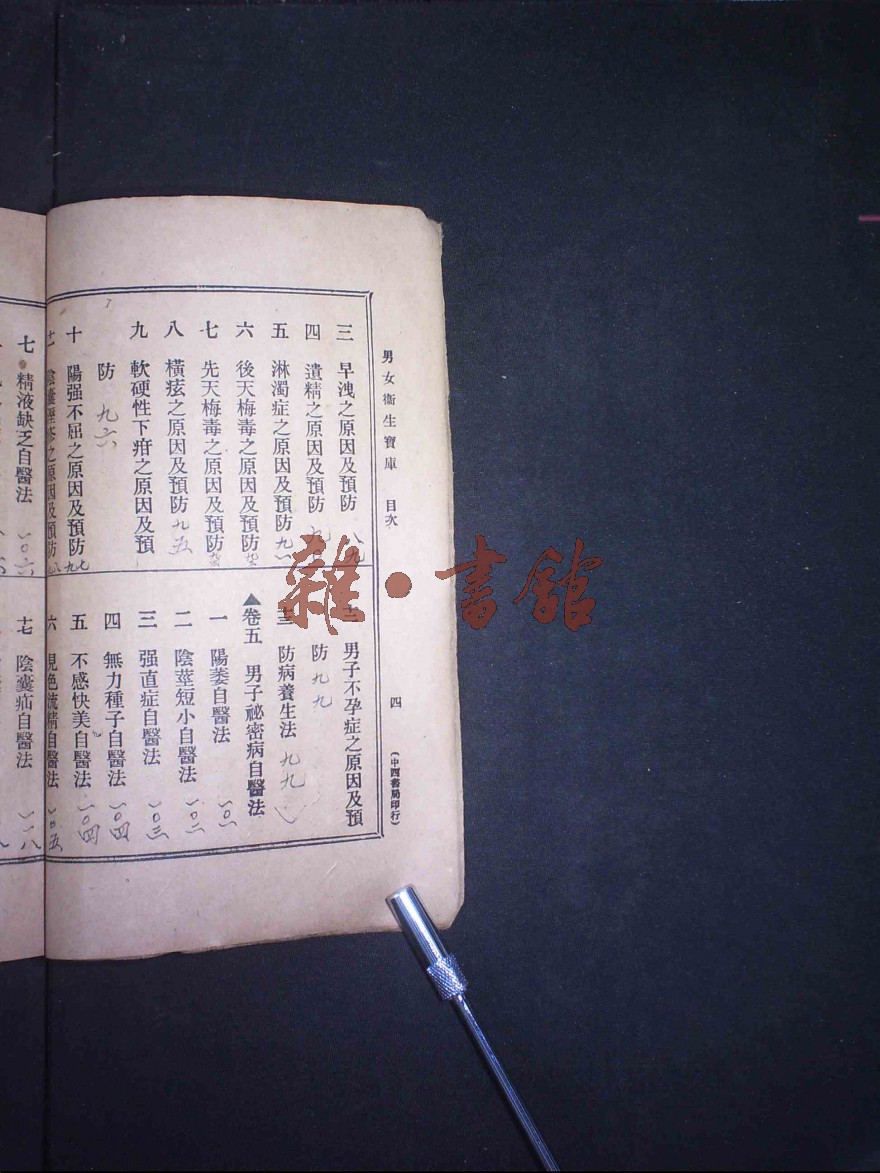 男女衞生寶庫 目次 四 (中西書局印行)
三 早洩之原因及預防 八九
四 遺精之原因及預防
五 淋濁症之原因及預防 九一
六 後天梅毒之原因及預防
七 先天梅毒之原因及預防
八 橫痃之原因及預防 九五
九 軟硬性下疳之原因及預
防 九六
十 陽强不屈之原因及預防 九七
之原因及預防 九八
男子不孕症之原因及預
防 九九
防病養生法 九九
▲卷五 男子祕密病自醫法
一 陽萎自醫法 一〇一
二 陰莖短小自醫法 一〇二
三 强直症自醫法 一〇三
四 無力種子自醫法 一〇四
五 不感快美自醫法 一〇四
六 見色流精自醫法 一〇五
七 精液缺乏自醫法 一〇六
陰囊疝自醫法 一一八
雜·書館